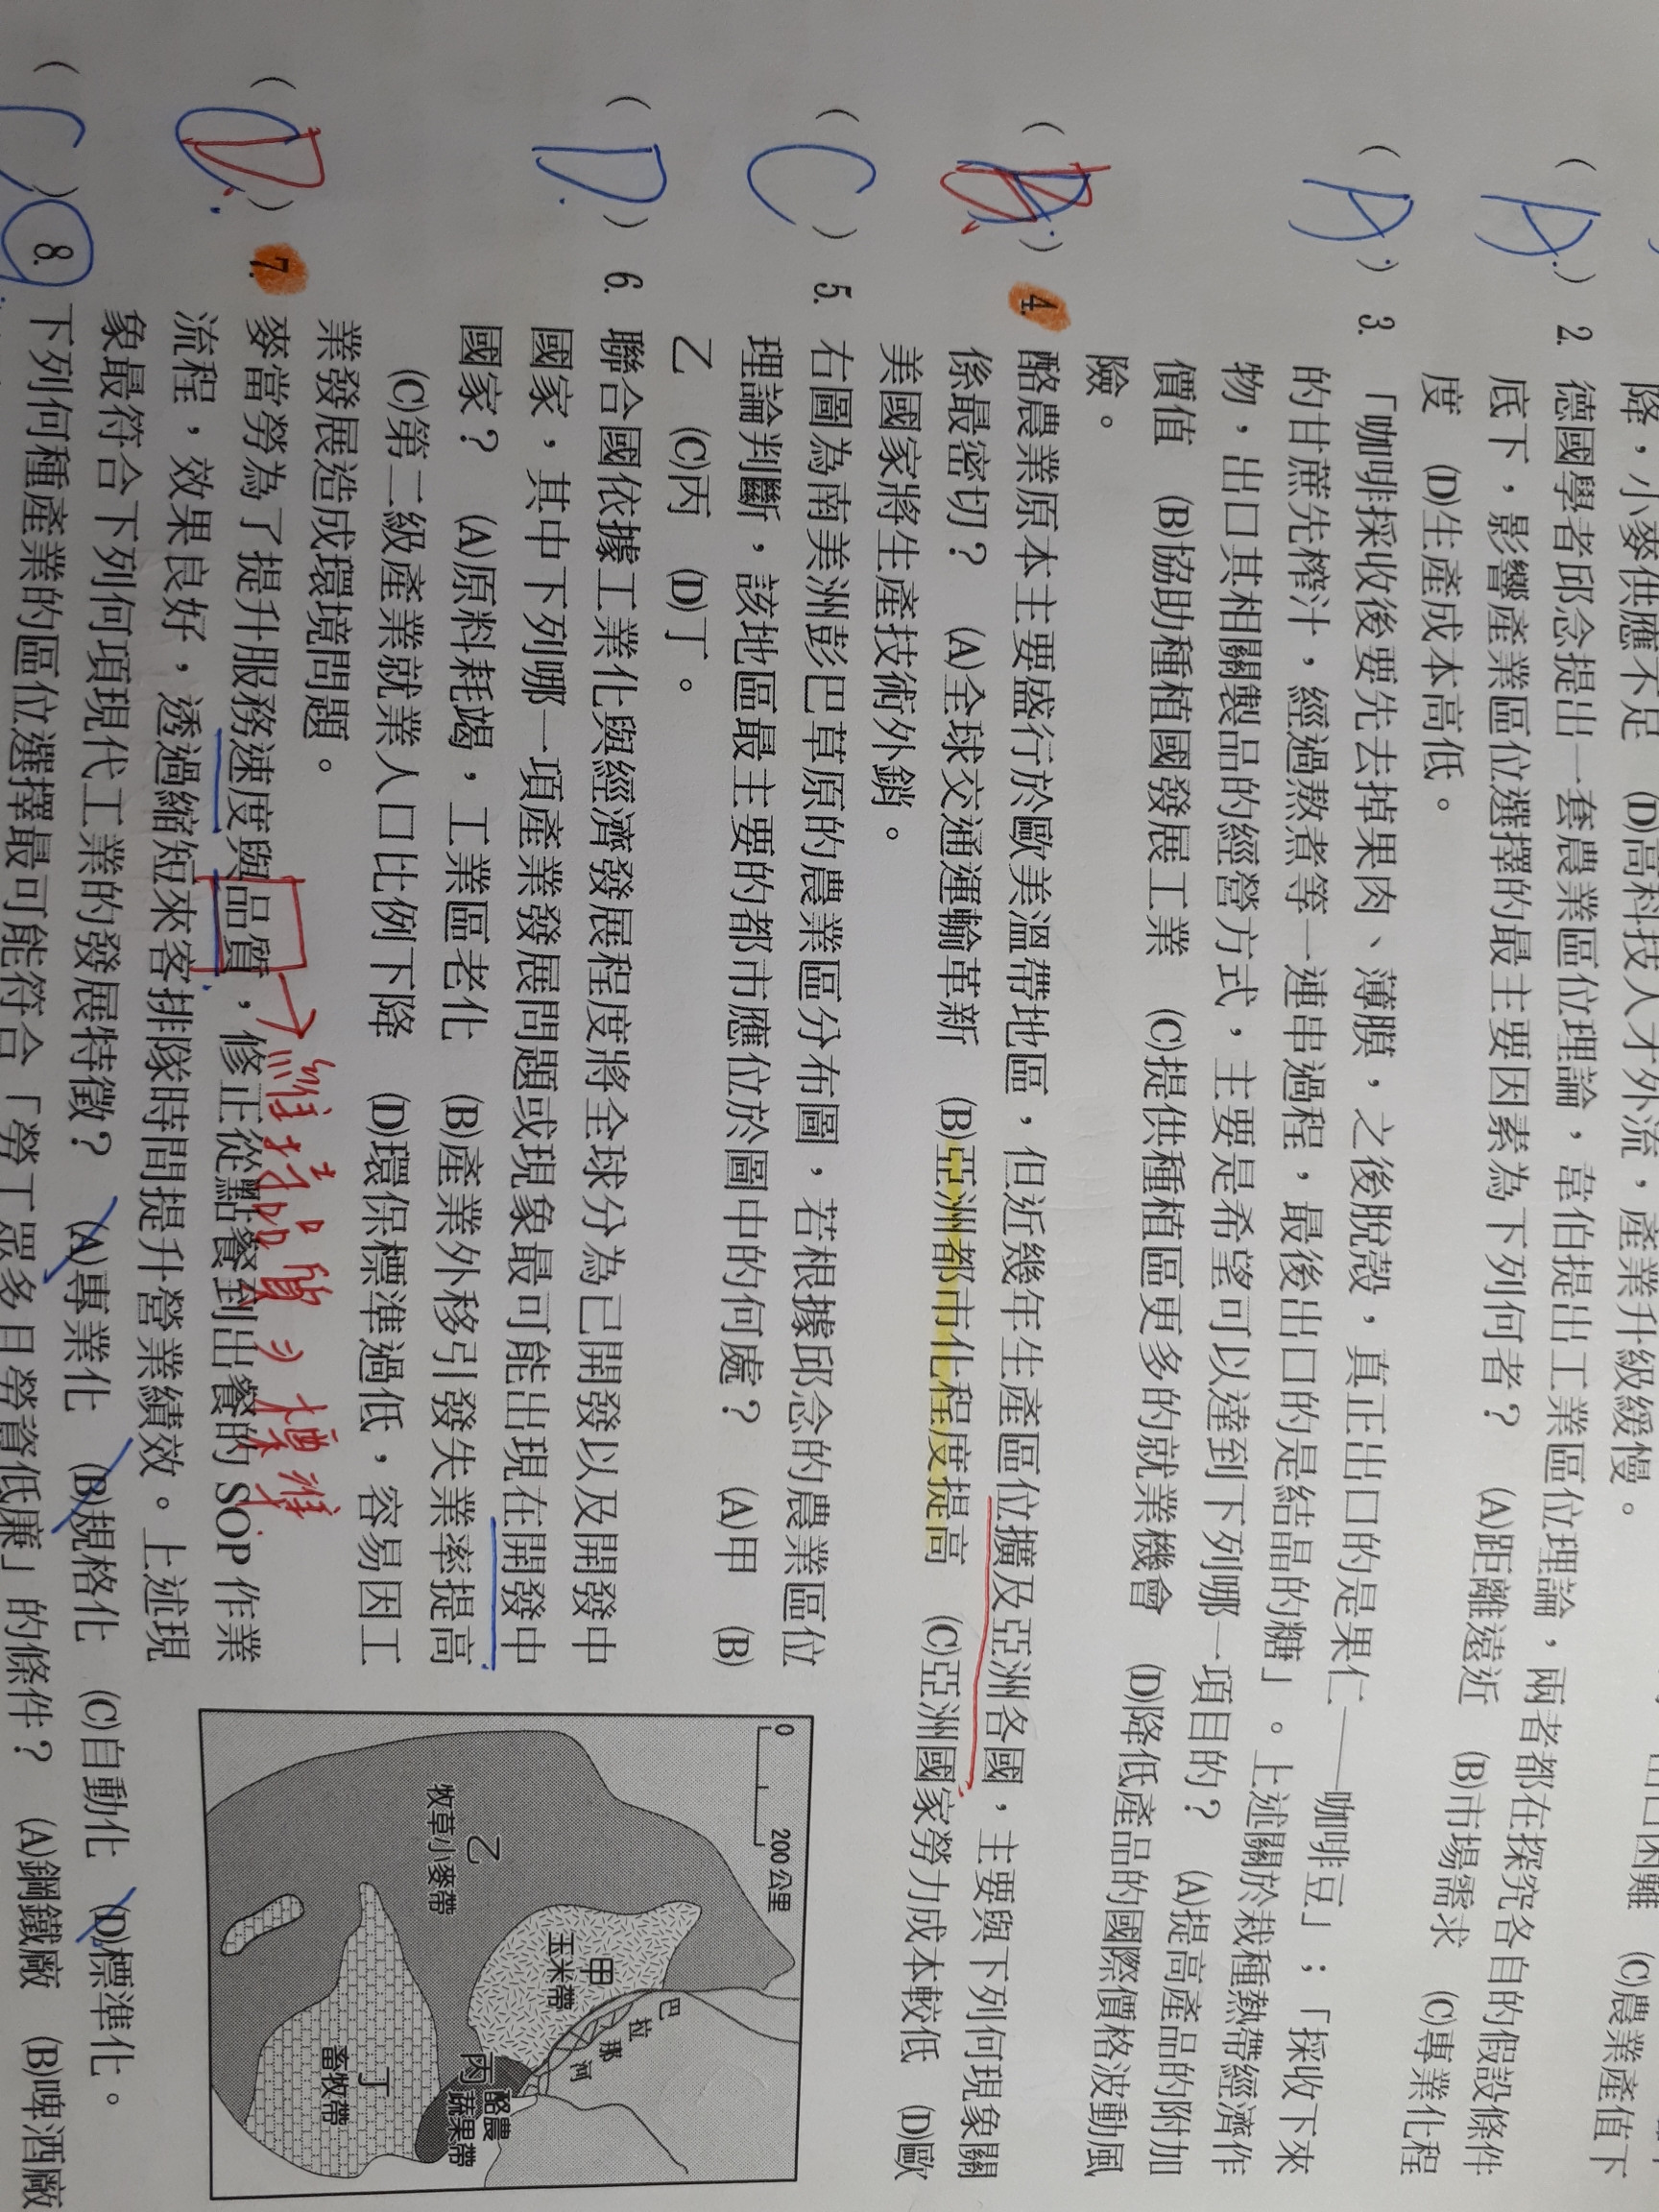 降，小麥供應不足　(D)高科技人才外流，產業升級緩慢。
(C)農業產值下
(A) 2. 德國學者邱念提出一套農業區位理論，韋伯提出工業區位理論，兩者都在探究各自的假設條件
底下，影響產業區位選擇的最主要因素為下列何者？　(A)距離遠近　(B)市場需求　(C)專業化程
度　(D)生產成本高低。
(A) 3. 「咖啡採收後要先去掉果肉、薄膜，之後脫殼，真正出口的是果仁——咖啡豆」；「採收下來
的甘蔗先榨汁，經過熬煮等一連串過程，最後出口的是結晶的糖」。上述關於栽種熱帶經濟作
物，出口其相關製品的經營方式，主要是希望可以達到下列哪一項目的？　(A)提高產品的附加
價值　(B)協助種植國發展工業　(C)提供種植區更多的就業機會　(D)降低產品的國際價格波動風
險。
(B) 4. 酪農業原本主要盛行於歐美溫帶地區，但近幾年生產區位擴及亞洲各國，主要與下列何現象關
係最密切？　(A)全球交通運輸革新　(B)亞洲都市化程度提高　(C)亞洲國家勞力成本較低　(D)歐
美國家將生產技術外銷。
(C) 5. 右圖為南美洲彭巴草原的農業區分布圖，若根據邱念的農業區位
理論判斷，該地區最主要的都市應位於圖中的何處？　(A)甲　(B)
乙　(C)丙　(D)丁。
(D) 6. 聯合國依據工業化與經濟發展程度將全球分為已開發以及開發中
國家，其中下列哪一項產業發展問題或現象最可能出現在開發中
國家？　(A)原料耗竭，工業區老化　(B)產業外移引發失業率提高
(C)第二級產業就業人口比例下降　(D)環保標準過低，容易因工
業發展造成環境問題。
(D) 7. 麥當勞為了提升服務速度與品質，修正從點餐到出餐的 SOP 作業
流程，效果良好，透過縮短來客排隊時間提升營業績效。上述現
象最符合下列何項現代工業的發展特徵？　(A)專業化　(B)規格化　(C)自動化　(D)標準化。
維持品質 → 標準
(C) 8. 下列何種產業的區位選擇最可能符合「勞工眾多且勞資低廉」的條件？　(A)鋼鐵廠　(B)啤酒廠
0　200公里
巴拉那河
甲
玉米帶
乙
牧草小麥帶
丙 酪農
蔬果帶
丁
畜牧帶